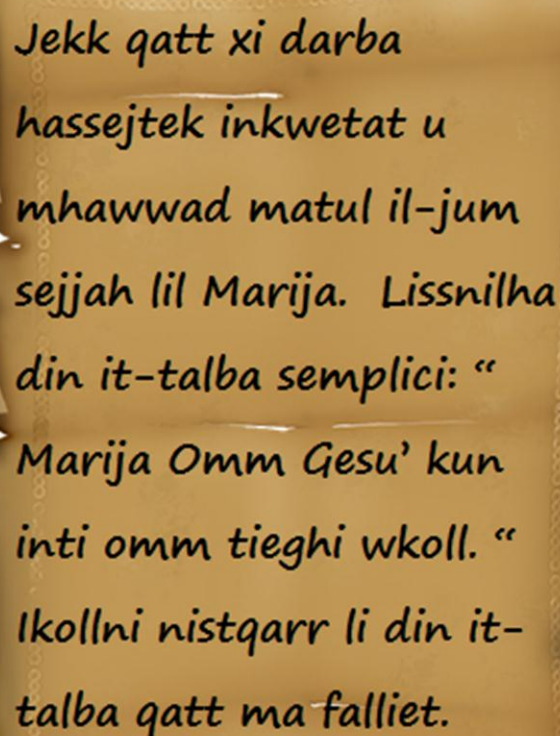 Jekk qatt xi darba
hassejtek inkwetat u
mhawwad matul il-jum
sejjah lil Marija.  Lissnilha
din it-talba semplici: “
Marija Omm Gesu’ kun
inti omm tieghi wkoll. “
Ikollni nistqarr li din it-
talba qatt ma falliet.